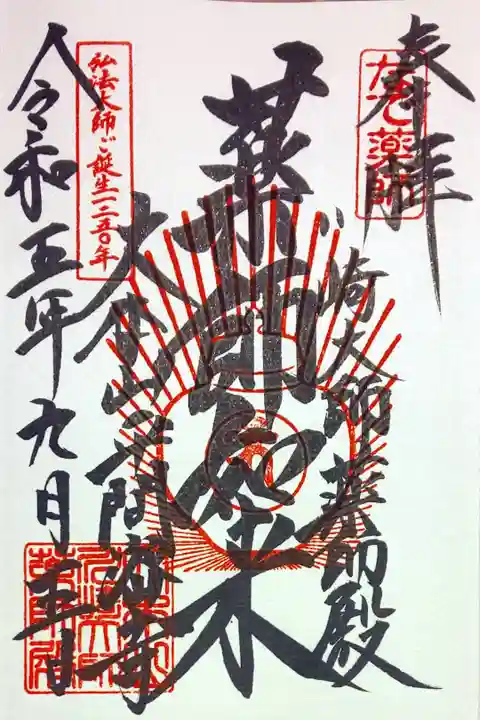 奉拝
なで薬師
川崎大師薬師殿
薬師如来
大本山平間寺
弘法大師ご誕生一二五〇年
令和五年九月五日